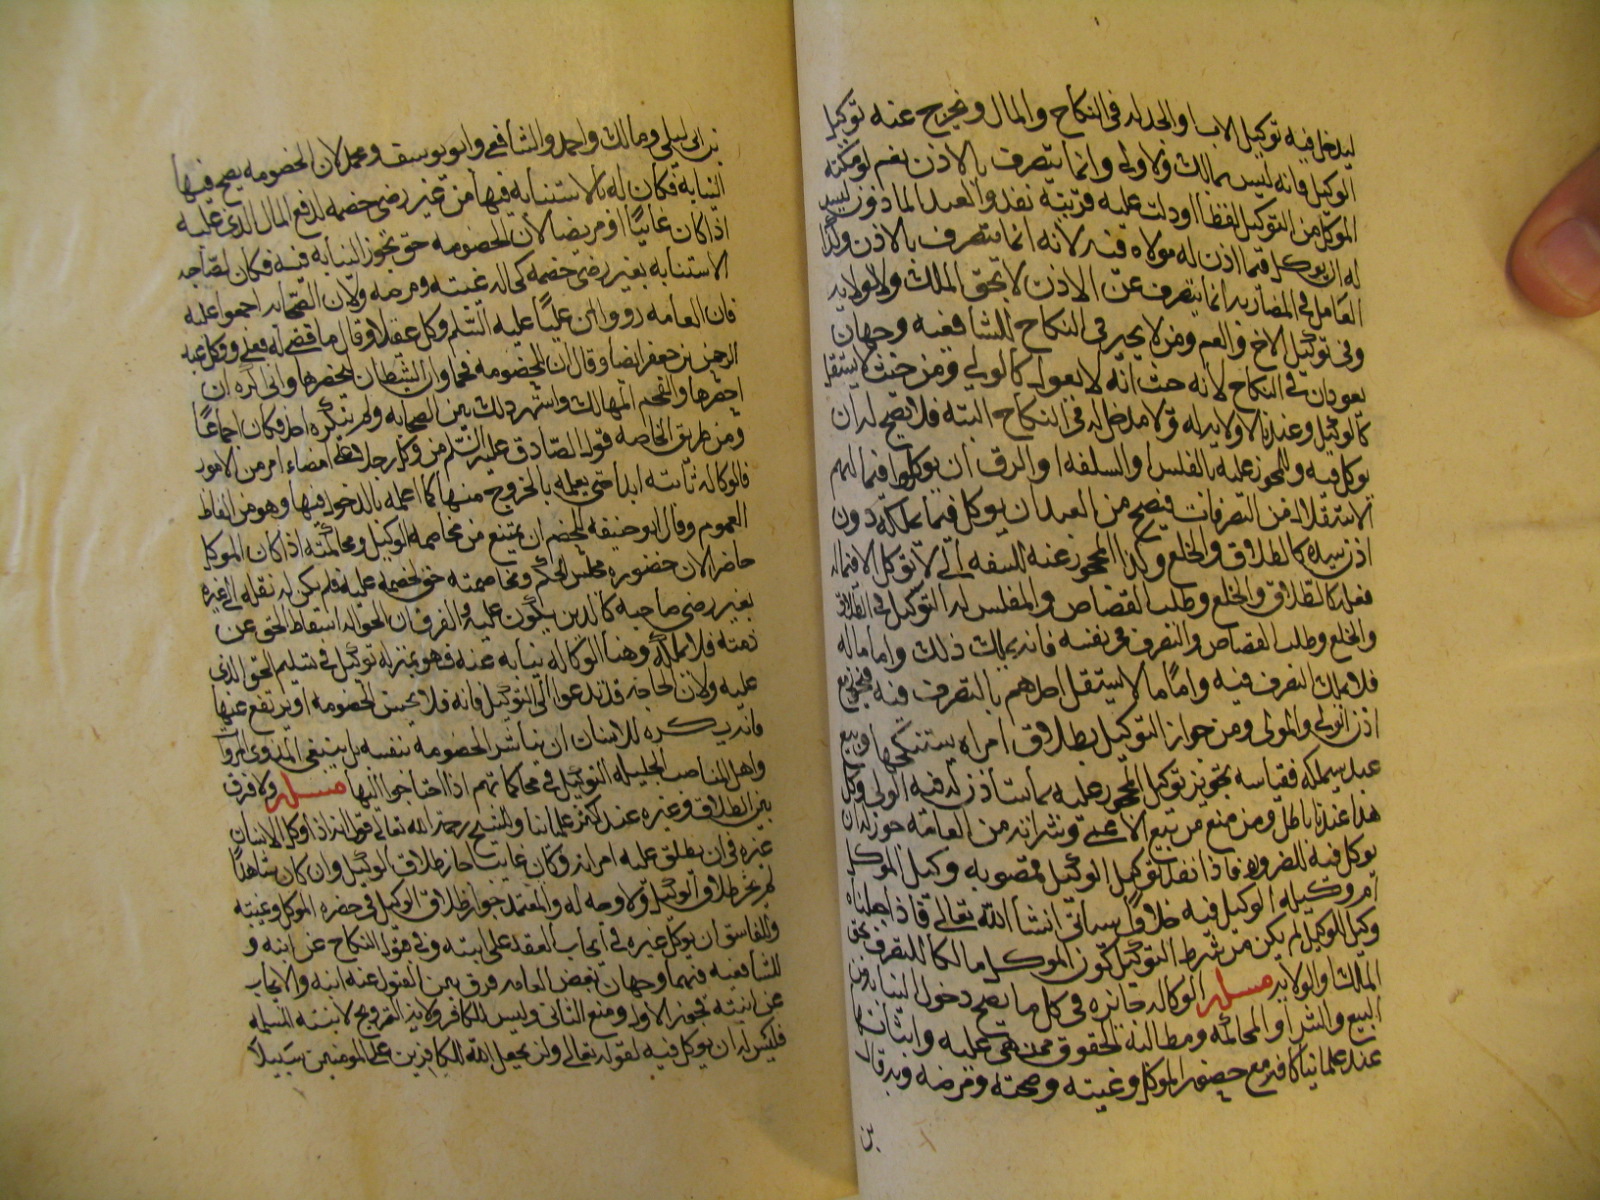 ليدخل فيه توكيل الاب والجد له في النكاح والمال ونخرج عنه توكيل
الوكيل فانه ليس بمالك ولا ولي وانما يتصرف بالاذن نعم لو مكنه
الموكل من التوكيل لفظا او دلت عليه قرينة نفذ والعبد الماذون ليس
له ان يوكل فيما اذن له مولاه فيه لانه انما يتصرف بالاذن وكذا
العامل في المضاربه انما يتصرف عن الاذن لا بحق الملك ولا الولايه
وفي توكيل الاخ والعم ومن لا يجبر في النكاح للشافعيه وجهان
يعودان في النكاح لانه حيث انه لا يعزل كالولي ومن حيث لا يستقل
كالوكيل وعندنا لا ولايه له ولا مدخل له في النكاح البته فلا يصح له ان
يوكل فيه وللمحجوز عليه بالفلس او السفه او الرق ان يوكلوا فيما لهم
الاستقلال من التصرفات فيصح من العبد ان يوكل فيما يملكه دون
اذن سيده كالطلاق والخلع وكذا المحجور عنه للسفه لا يوكل الا فيما له
فعله كالطلاق والخلع وطلب القصاص والمفلس له التوكيل في الطلاق
والخلع وطلب القصاص والتصرف في نفسه فانه يملك ذلك واما ماله
فلا يملك التصرف فيه واما ما لا يستقل احدهم بالتصرف فيه فيجوز مع
اذن الولي والمولى ومن جواز التوكيل بطلاق امراه يستنكحها وبيع
عبد سيملكه فقياسه تجويز توكيل المحجور عليه بما سياذن له فيه الولي وكل
هذا عندنا باطل ومن منع من بيع الاعمى وشرائه من العامه جوز له ان
يوكل فيه للضروره فاذا نفذ توكيل الوكيل فمنصوبه وكيل الموكل
او وكيله الوكيل فيه خلاف سياتي انشا الله تعالى فاذا جعلناه
وكيل الوكيل لم يكن من شرط التوكيل كون الموكل مالكا للتصرف بحق
الملك او الولايه مسله الوكاله جائزه في كل ما يصح دخول النيابه فيه من
البيع والشرا والمحاكمه ومطالبة الحقوق ممن هي عليه واثباتها
عند علمائنا كافه مع حضور الموكل وغيبته وصحته ومرضه وبه قال
بن
بن ابي ليلى ومالك واحمد والشافعي وابو يوسف ومحمد لان الخصومه يصح فيها
النيابة فكان له الاستنابه فيها من غير رضى خصمه لدفع المال الذي عليه
اذا كان غايبا او مريضا لان الخصومه حق تجوز النيابه فيه فكان لصاحبه
الاستنابه بغير رضى خصمه كحاله غيبته ومرضه ولان الصحابه اجمعوا عليه
فان العامه رووا ان عليا عليه السلم وكل عقيلا وقال ما قضي له فلي ووكل عبد
الرحمن بن جعفر ايضا وقال ان للخصومه قحما وان الشيطان ليحضرها واني لاكره ان
احضرها والقحم المهالك واشتهر ذلك بين الصحابه ولم ينكره احد فكان اجماعا
ومن طريق الخاصه قول الصادق عليه السلم من وكل رجلا على امضاء امر من الامور
فالوكاله ثابته ابدا حتى يعلمه بالخروج منها كما اعلمه بالدخول فيها وهو من الفاظ
العموم وقال ابو حنيفه للخصم ان يمتنع من مخاصمه الوكيل ومحاكمته اذا كان الموكل
حاضرا لان حضوره مجلس الحكم ومخاصمته حق لخصمه عليه فلم يكن له نقله الى غيره
بغير رضى صاحبه كالدين يكون عليه والفرق ان الحواله اسقاط الحق عن
ذمته فلا يملكه وهنا الوكاله نيابه عنه فهو بمنزله توكيل في تسليم الحق الذي
عليه ولان الحاجه قد تدعوا الى التوكيل فانه قد لا يحسن الخصومه او يرتفع عنها
فانه يكره للانسان ان يباشر الخصومه بنفسه بل ينبغي لذوي المروآت
واهل المناصب الجليله التوكيل في محاكماتهم اذا احتاجوا اليها مسله ولا فرق
بين الطلاق وغيره عند اكثر علمائنا وللشيخ رحمه الله تعالى قول انه اذا وكل الانسان
غيره في ان يطلق عليه امراته وكان غايبا جاز طلاق الوكيل وان كان شاهدا
لم يجز طلاق الوكيل ولا وجه له والمعتمد جواز طلاق الوكيل في حضره الموكل وغيبته
وللفاسق ان يوكل غيره في ايجاب العقد على ابنته وفي قبول النكاح عن ابنه و
للشافعيه فيهما وجهان وبعض العامه فرق بين القبول عنه ابنه والايجاب
عن ابنته فجوز الاول ومنع الثاني وليس للكافر ولايه التزويج لابنته المسلمه
فليس له ان يوكل فيه لقوله تعالى ولن يجعل الله للكافرين على المومنين سبيلا